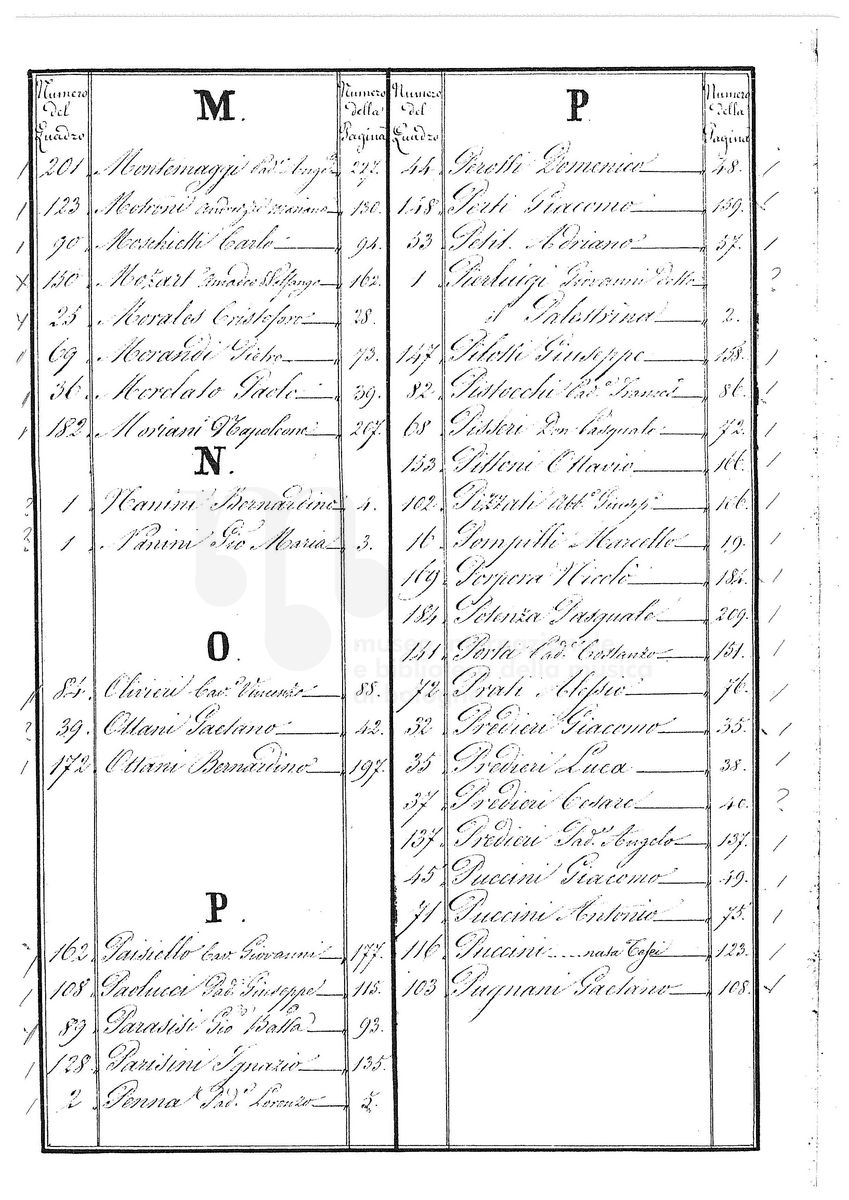 Numero del Quadro
M.
Numero della Pagina
201 Montemaggi Pad.e Ang.o 227
123 Motroni Andrea 130.
90 Moschietti Carlo 94.
150 Mozart Amadeo Wolfango 162.
25 Morales Cristoforo 28.
69 Morandi Pietro 73.
36 Mordato Paolo 39.
182 Moriani Napoleone 207.
N.
1 Nanini Bernardino 4.
1 Nanini Gio Maria 3.
O.
84 Olivieri Cav.e Vincenzo 88.
39 Ottani Gaetano 42.
172 Ottani Bernardino 197.
P.
162 Paisiello Cav. Giovanni 177.
108 Paolucci Pad.e Giuseppe 115.
89 Parasisi Gio Batta 93.
128 Parisini Ignazio 135.
2 Penna Pad.e Lorenzo 5.
Numero del Quadro
P.
Numero della Pagina
44 Perotti Domenico 48.
148 Perti Giacomo 159.
53 Petit Adriano 57.
1 Pierluigi Giovanni Detto ?
il Palestrina 2.
147 Pilotti Giuseppe 158.
82 Pistocchi Pad.e Franc.o 86.
68 Pisseri Don Pasquale 72.
153 Pittoni Ottavio 166.
102 Pizzati Abb.e Giusep.e 106.
16 Pompilli Marcello 19.
169 Porpora Nicolo 184.
184 Potenza Pasquale 209.
141 Porta Pad. Costanzo 151.
72 Prati Alessio 76.
32 Predieri Giacomo 35.
35 Predieri Luca 38.
37 Predieri Cesare 40. ?
137 Predieri Pad.e Angelo 137.
45 Puccini Giacomo 49.
71 Puccini Antonio 75.
116 Puccini .... nata Tesei 123.
103 Pugnani Gaetano 108.
museo internazionale
e biblioteca della musica